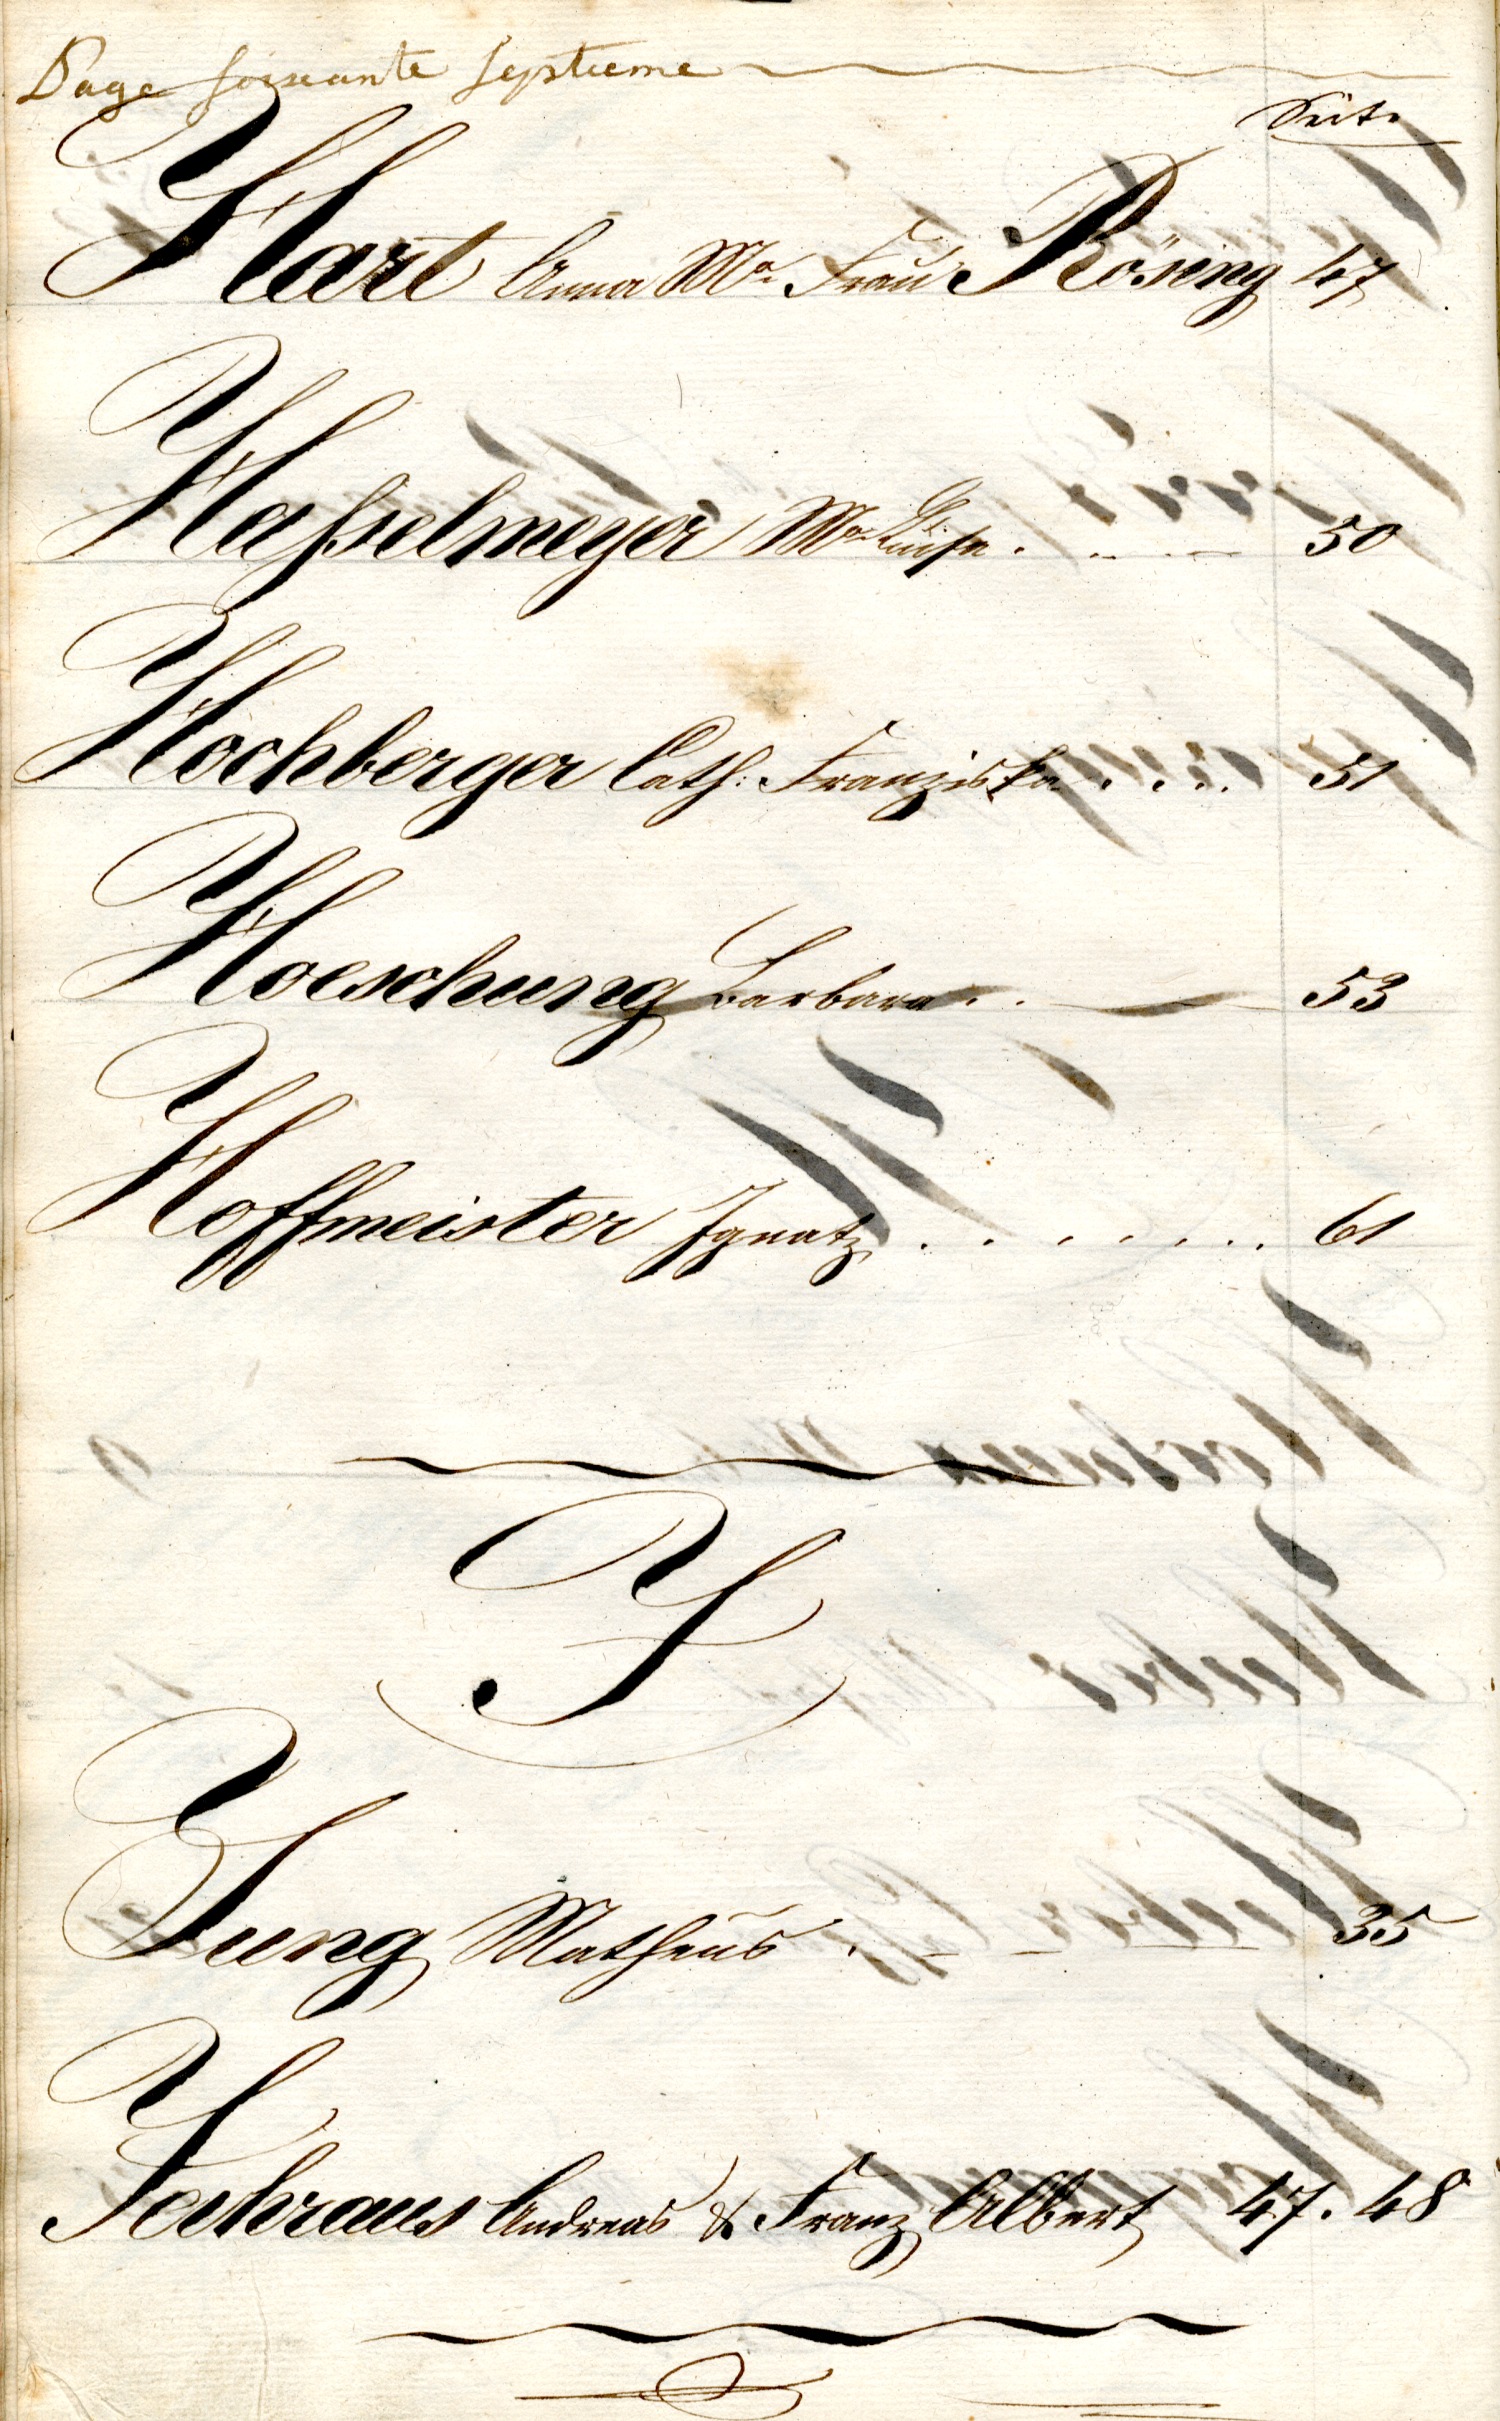 Page soixante septieme
Seite
Hart Anna Mª Frau Rösing 47
Haßelmeyer Mª Luise . .. — 50
Hochberger Cath: Franziska . . . . 51
Hoeschung Barbara . . — 53
Hoffmeister Ignatz . . . . . . . . 61
J
Jung Matheus . — — — 35
Jehraus Andreas & Franz Albert 47. 48